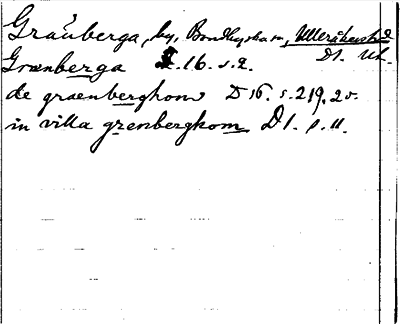 Gränberga, by, Bondkyrka sn, Ulleråkers hd
D1. Uh.
Grænberga D.16. s.2.
de graenberghom D16. s.219. 2v.
in villa grenberghom D1. p.11.